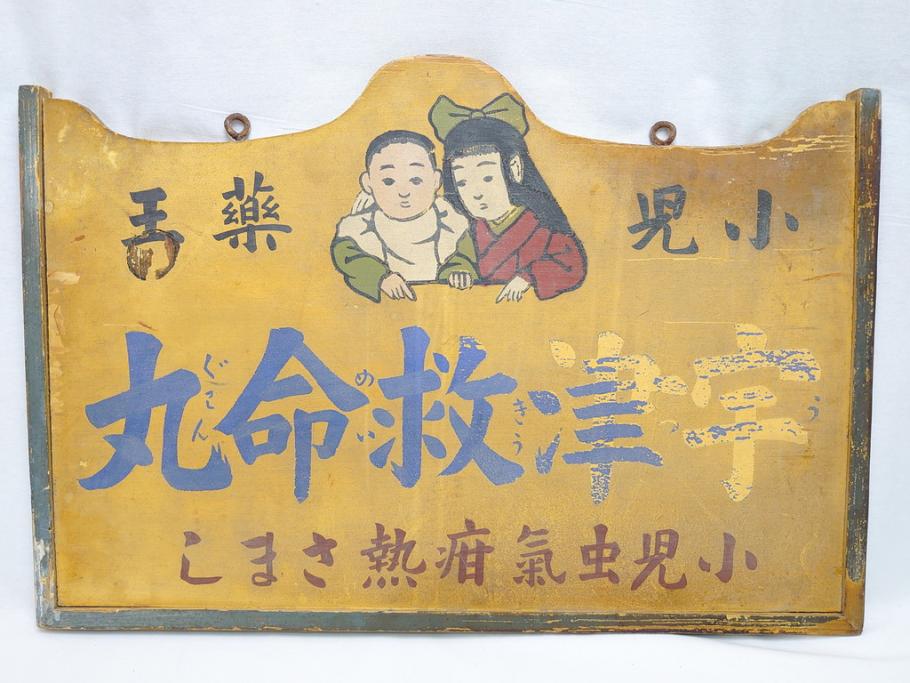 小児 藥王
宇津救命丸
う つ きう めい ぐわん
小児虫氣疳熱さまし